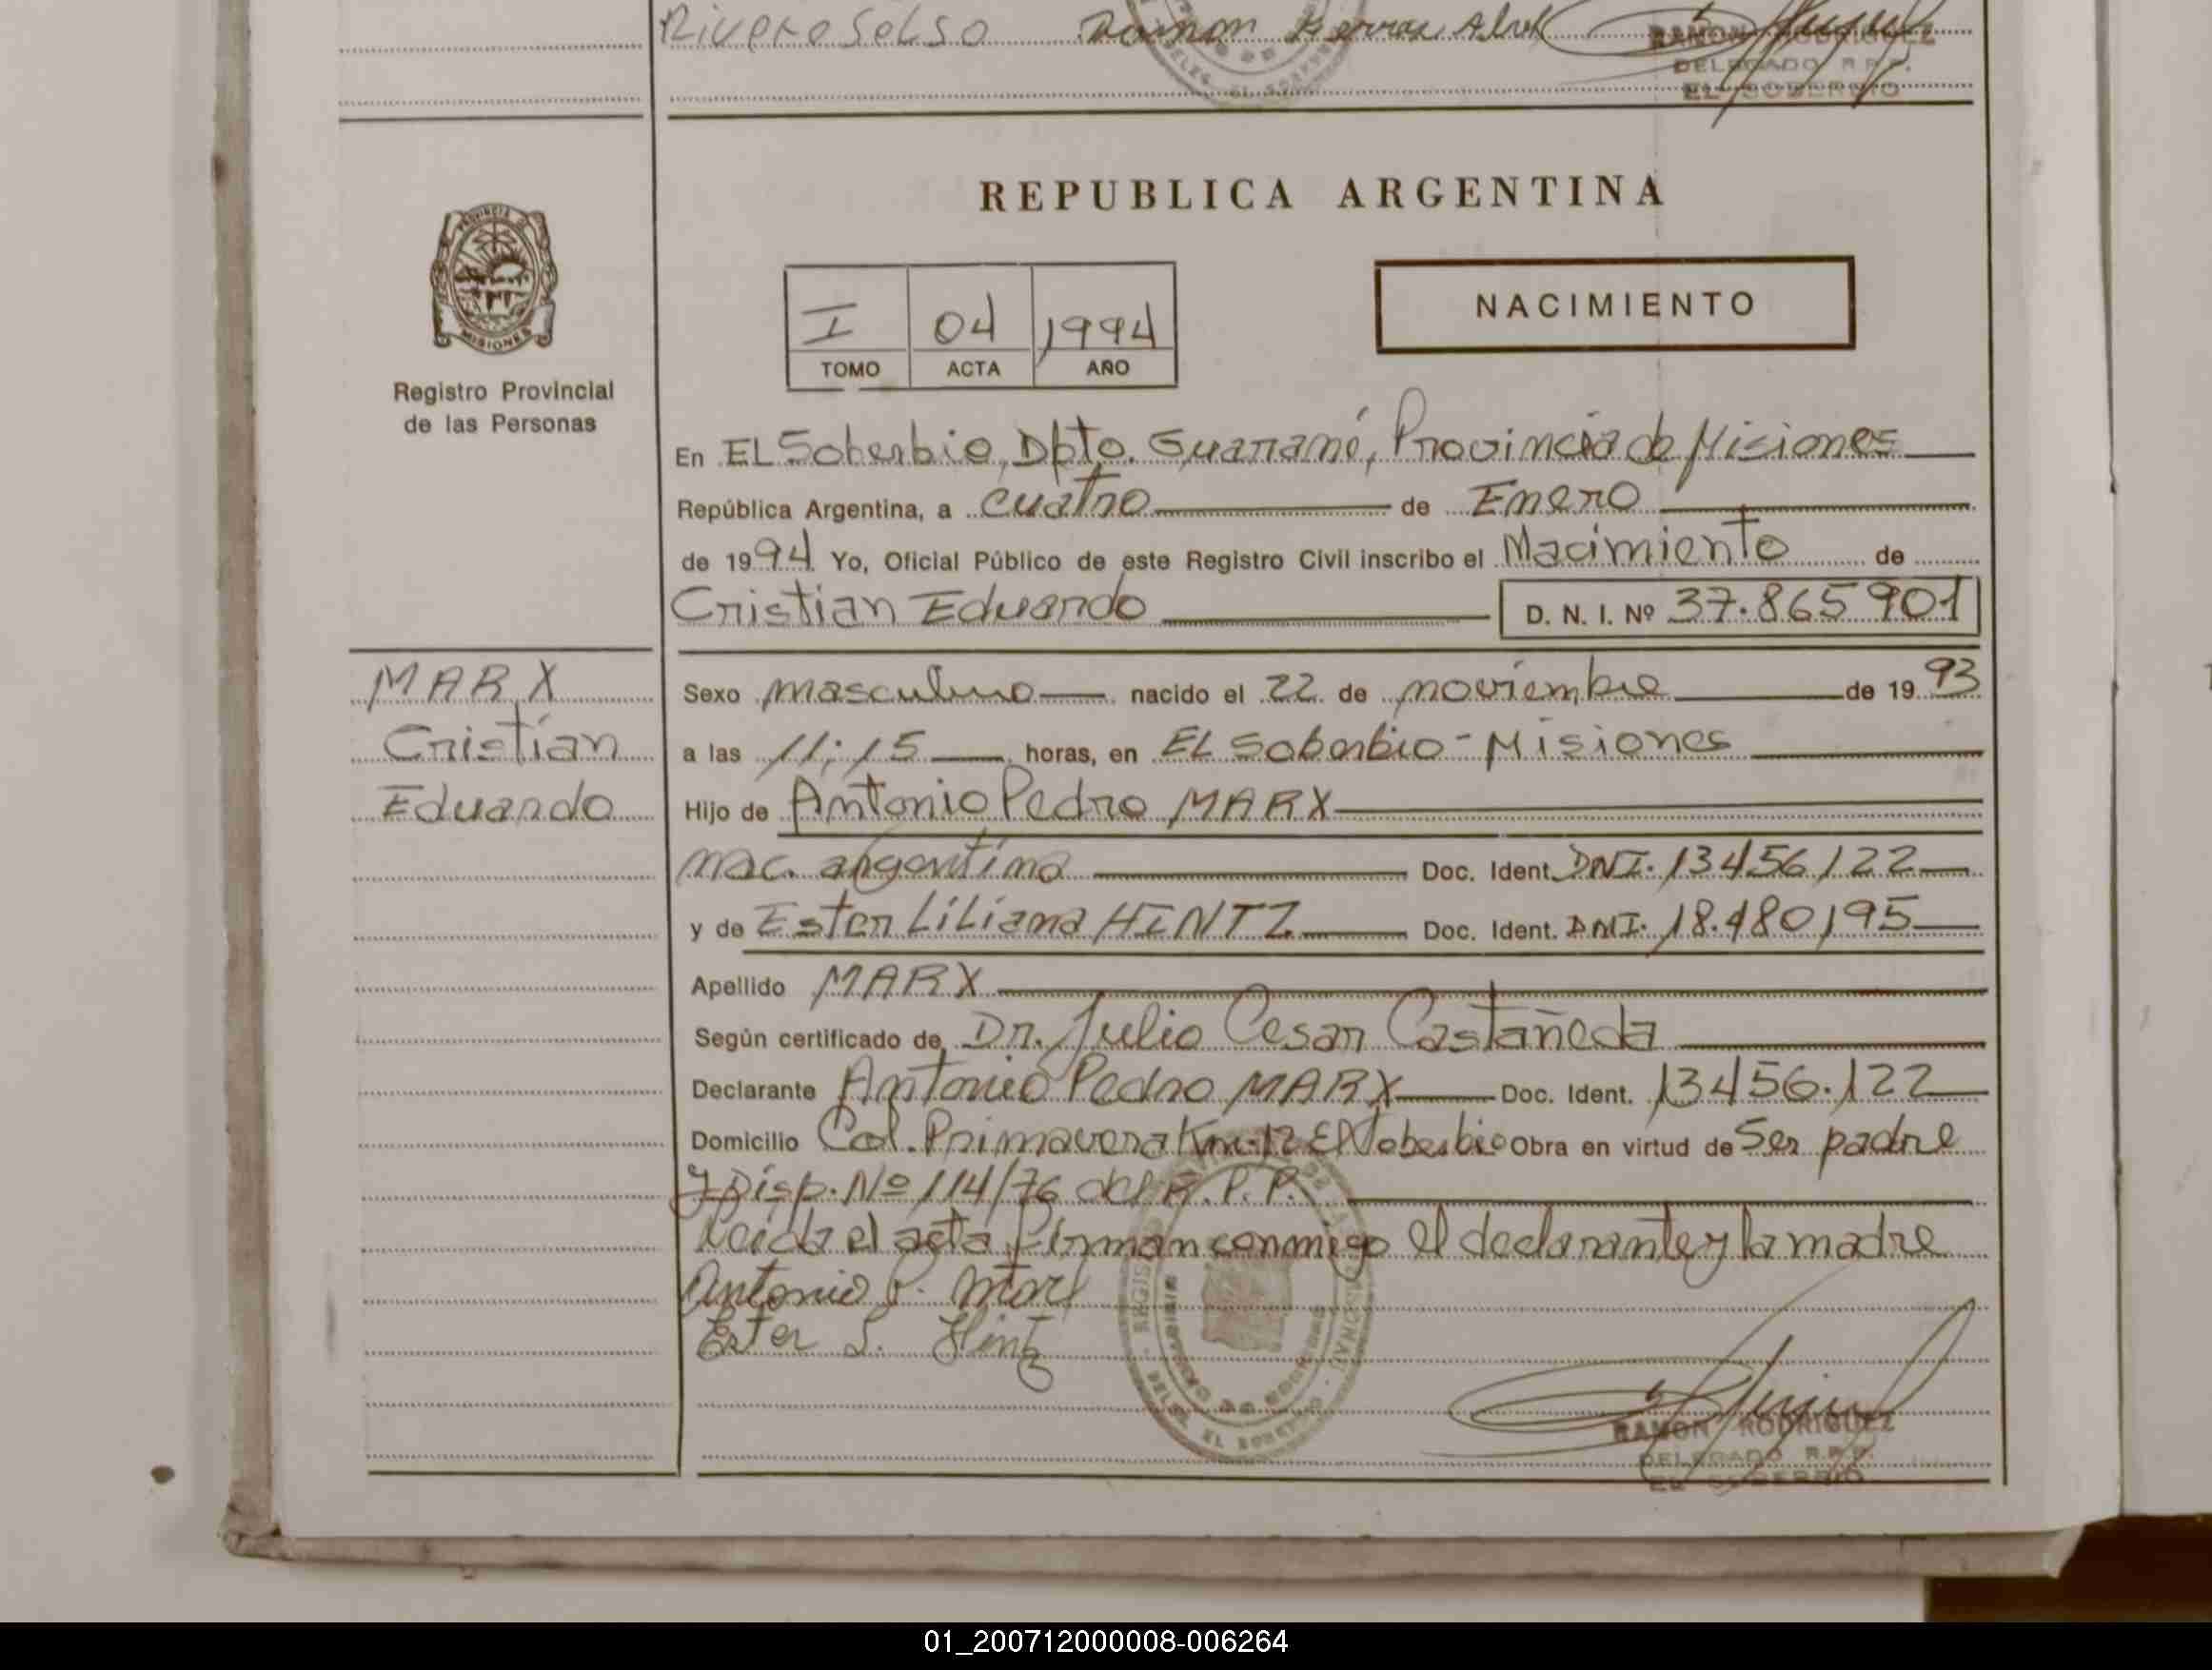 Rivero Selso Ramon
RAMON RODRIGUEZ
DELEGADO R.P.P.
EL SOBERBIO
PROVINCIA DE
MISIONES
Registro Provincial
de las Personas
REPUBLICA ARGENTINA
I 04 1994
TOMO ACTA AÑO
NACIMIENTO
En EL Soberbio, Dpto. Guaraní, Provincia de Misiones
República Argentina, a cuatro de Enero
de 1994 Yo, Oficial Público de este Registro Civil inscribo el Nacimiento de
Cristian Eduardo D. N. I. Nº 37.865.901
MARX
Cristian
Eduardo
Sexo masculino nacido el 22 de noviembre de 1993
a las 11:15 horas, en EL Soberbio - Misiones
Hijo de Antonio Pedro MARX
nac. argentina Doc. Ident. DNI. 13456122
y de Ester Liliana HINTZ Doc. Ident. DNI. 18.480195
Apellido MARX
Según certificado de Dr. Julio Cesar Castañeda
Declarante Antonio Pedro MARX Doc. Ident. 13456.122
Domicilio Col. Primavera Km-12 El Soberbio Obra en virtud de Ser padre
y Disp. Nº 114/76 del R.P.P.
Leida el acta, Firman conmigo el declarante y la madre
Antonio P. Marx
Ester L. Hintz
RAMON RODRIGUEZ
DELEGADO R.P.P.
EL SOBERBIO
01_200712000008-006264